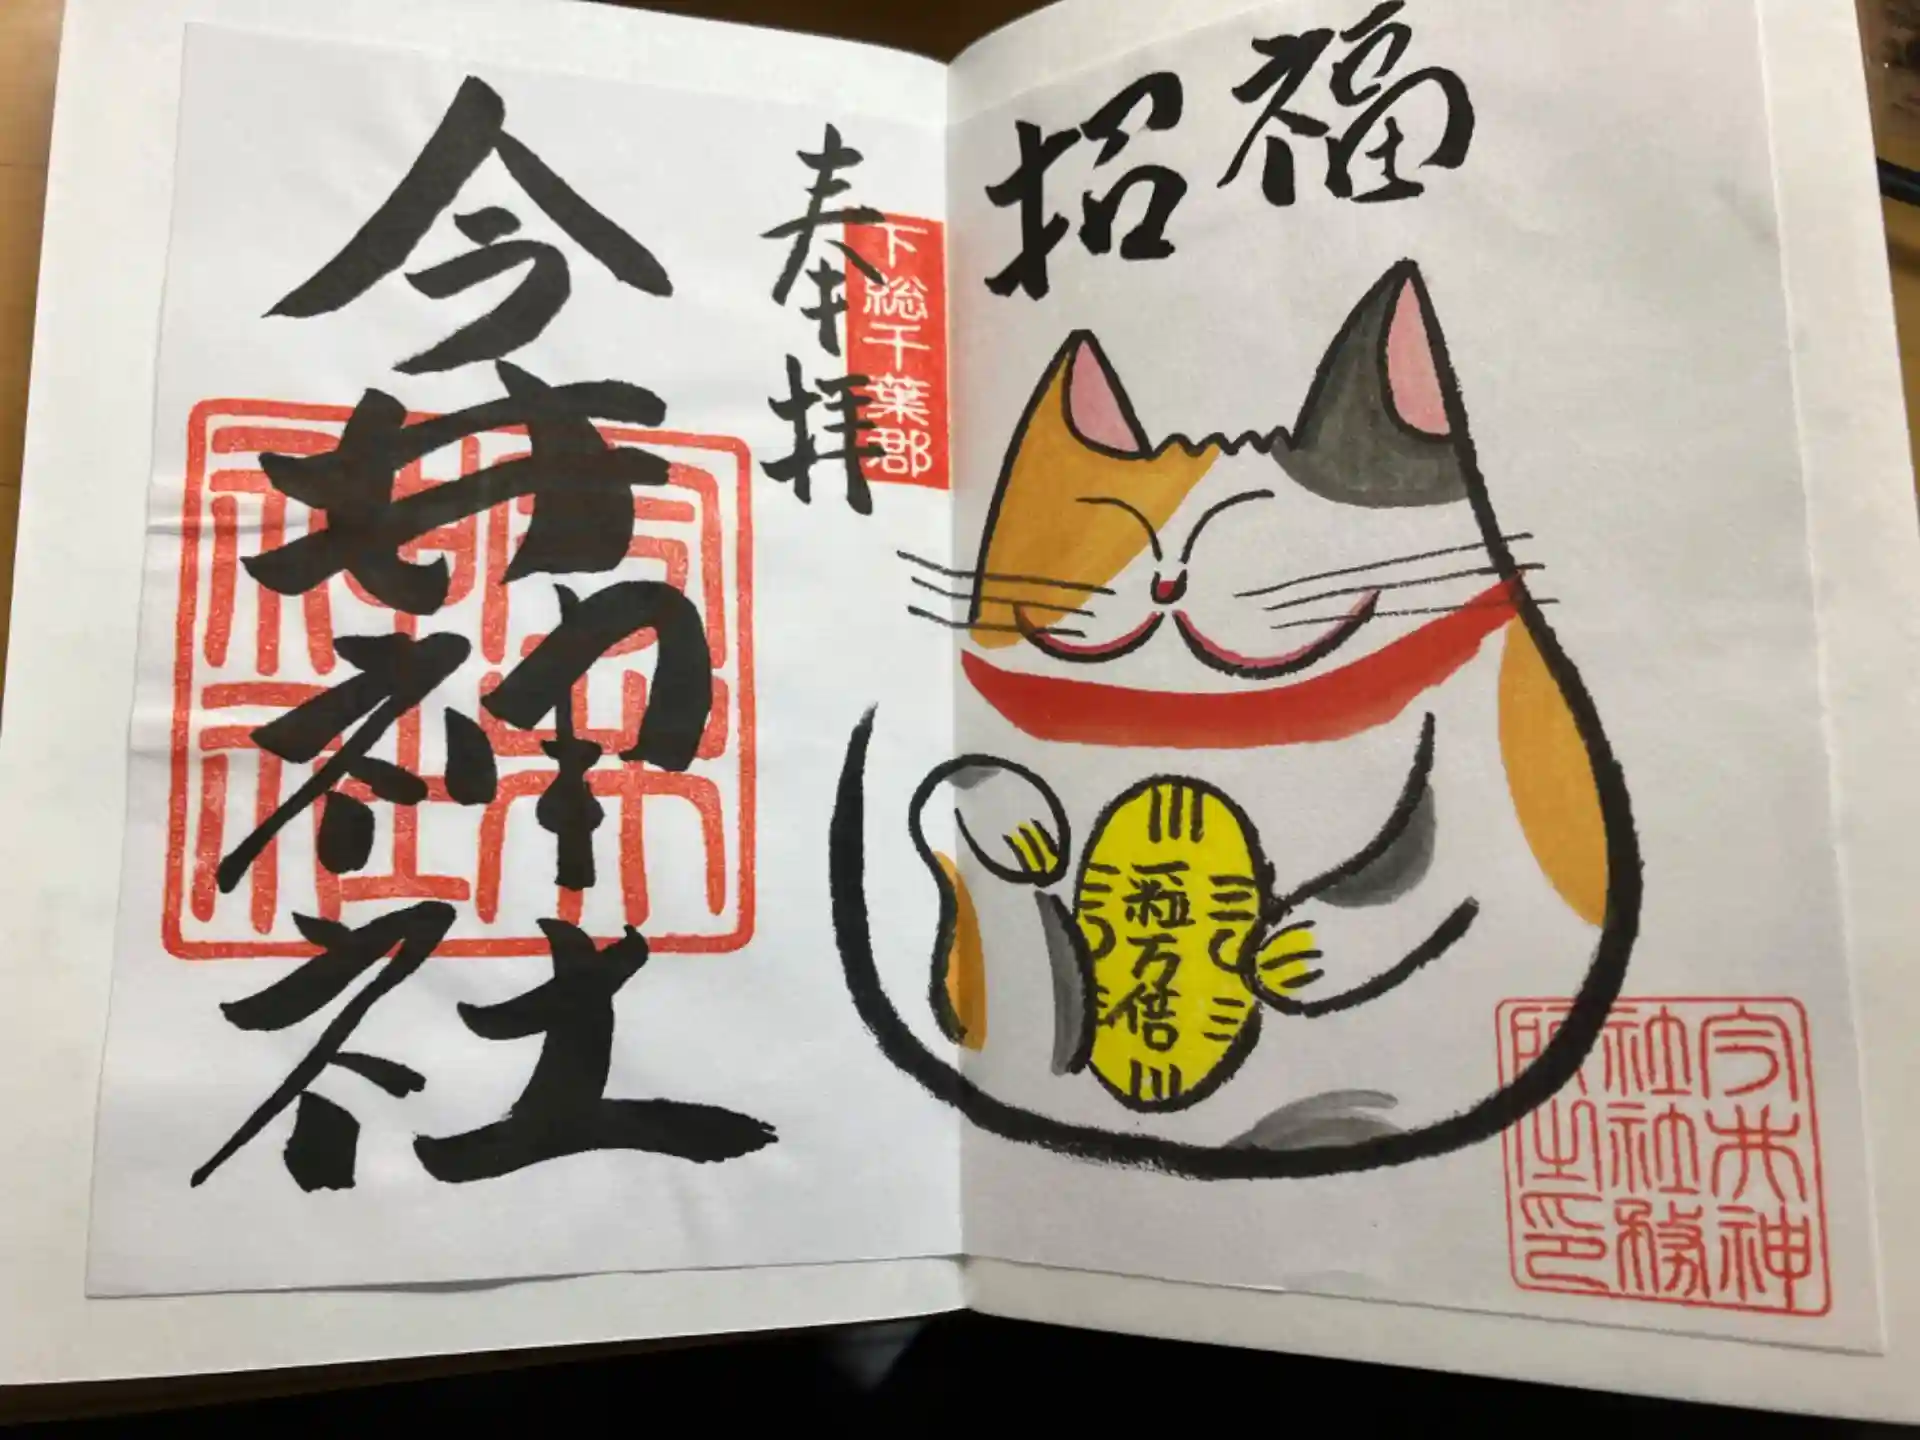 福
招
一粒万倍
今井神社社務所之印
奉拝
下総千葉郡
今井神社